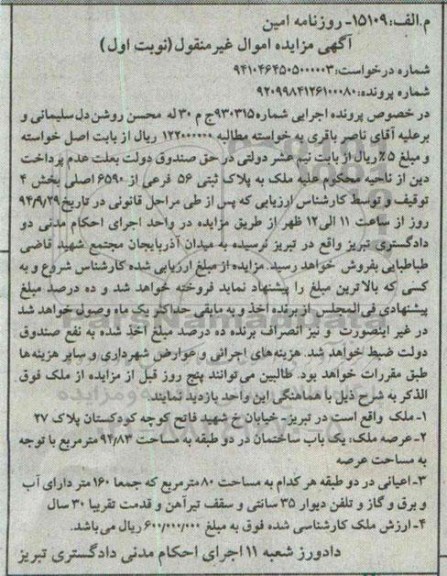 م.الف:۱۵۱۰۹- روزنامه امین
آگهی مزایده اموال غیرمنقول(نوبت اول)
شماره درخواست:۹۴۱۰۴۶۴۵۰۵۰۰۰۰۰۳
شماره پرونده:۹۲۰۹۹۸۴۱۲۶۱۰۰۰۸۰
در خصوص پرونده اجرایی شماره۹۳۰۳۱۵ج م ۳۰ له محسن روشن دل سلیمانی و
برعلیه آقای ناصر باقری به خواسته مطالبه ۱۲۲۰۰۰۰۰۰ ریال از بابت اصل خواسته
و مبلغ ۵٪ریال از بابت نیم عشر دولتی در حق صندوق دولت بعلت عدم پرداخت
دین از ناحیه محکوم علیه ملک به پلاک ثبتی ۵۶ فرعی از ۶۵۹۰ اصلی بخش ۴
توقیف و توسط کارشناس ارزیابی که پس از طی مراحل قانونی در تاریخ۹۴/۹/۲۹
روز از ساعت ۱۱ الی۱۲ ظهر از طریق مزایده در واحد اجرای احکام مدنی دو
دادگستری تبریز واقع در تبریز نرسیده به میدان آذربایجان مجتمع شهید قاضی
طباطبایی بفروش خواهد رسید. مزایده از مبلغ ارزیابی شده کارشناس شروع و به
کسی که بالاترین مبلغ را پیشنهاد نماید فروخته خواهد شد و ده درصد مبلغ
پیشنهادی فی المجلس از برنده اخذ و به مابقی حداکثر یک ماه وصول خواهد شد
در غیر اینصورت و نیز انصراف برنده ده درصد مبلغ اخذ شده به نفع صندوق
دولت ضبط خواهد شد. هزینه‌های اجرائی و عوارض شهرداری و سایر هزینه‌ها
طبق مقررات خواهد بود. طالبین می‌توانند پنج روز قبل از مزایده از ملک فوق
الذکر به شرح ذیل با هماهنگی این واحد بازدید نمایند
۱-ملک واقع است در تبریز- خیابان خ شهید فاتح کوچه کودکستان پلاک ۲۷
۲-عرصه ملک: یک باب ساختمان در دو طبقه به مساحت ۹۴،۸۳ مترمربع با توجه
به مساحت عرصه
۳-اعیانی در دو طبقه هر کدام به مساحت ۸۰ مترمربع که جمعا ۱۶۰ متر دارای آب
و برق و گاز و تلفن دیوار ۳۵ سانتی و سقف تیرآهن و قدمت تقریبا ۳۰ سال
۴-ارزش ملک کارشناسی شده فوق به مبلغ ۶۰۰/۰۰۰/۰۰۰ ریال می‌باشد.
دادورز شعبه ۱۱ اجرای احکام مدنی دادگستری تبریز